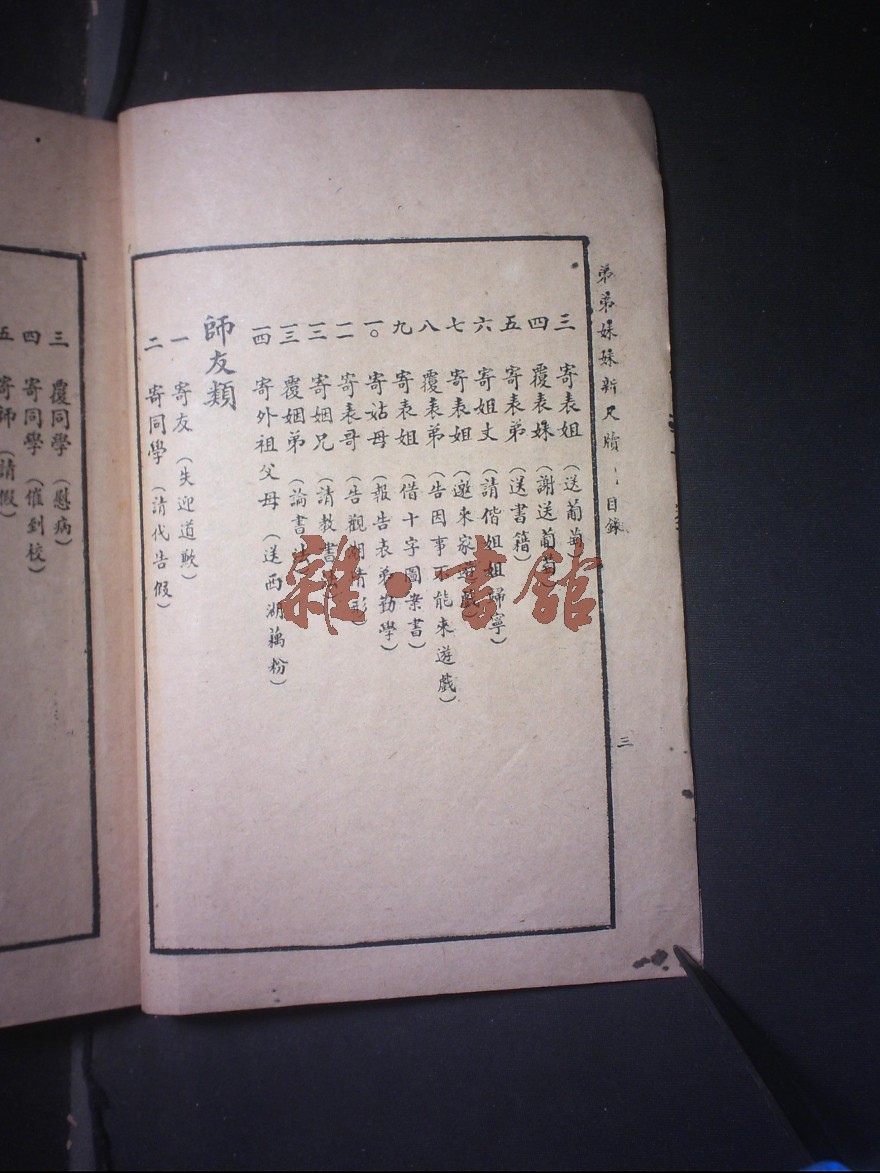 弟弟妹妹新尺牘 目錄
三
三 寄表姐（送葡萄）
四 覆表妹（謝送葡萄）
五 寄表弟（送書籍）
六 寄姐丈（請偕姐姐歸寧）
七 寄表姐（邀來家遊戲）
八 覆表弟（告因事不能來遊戲）
九 寄表姐（借十字圖案書）
一〇 寄姑母（報告表弟勤學）
一一 寄表哥（告觀湖情形）
一二 寄姻兄（請教書
一三 覆姻弟（論書
一四 寄外祖父母（送西湖藕粉）
師友類
一 寄友（失迎道歉）
二 寄同學（請代告假）
三 覆同學（慰病）
四 寄同學（催到校）
五 寄師（請假）
雜·書館